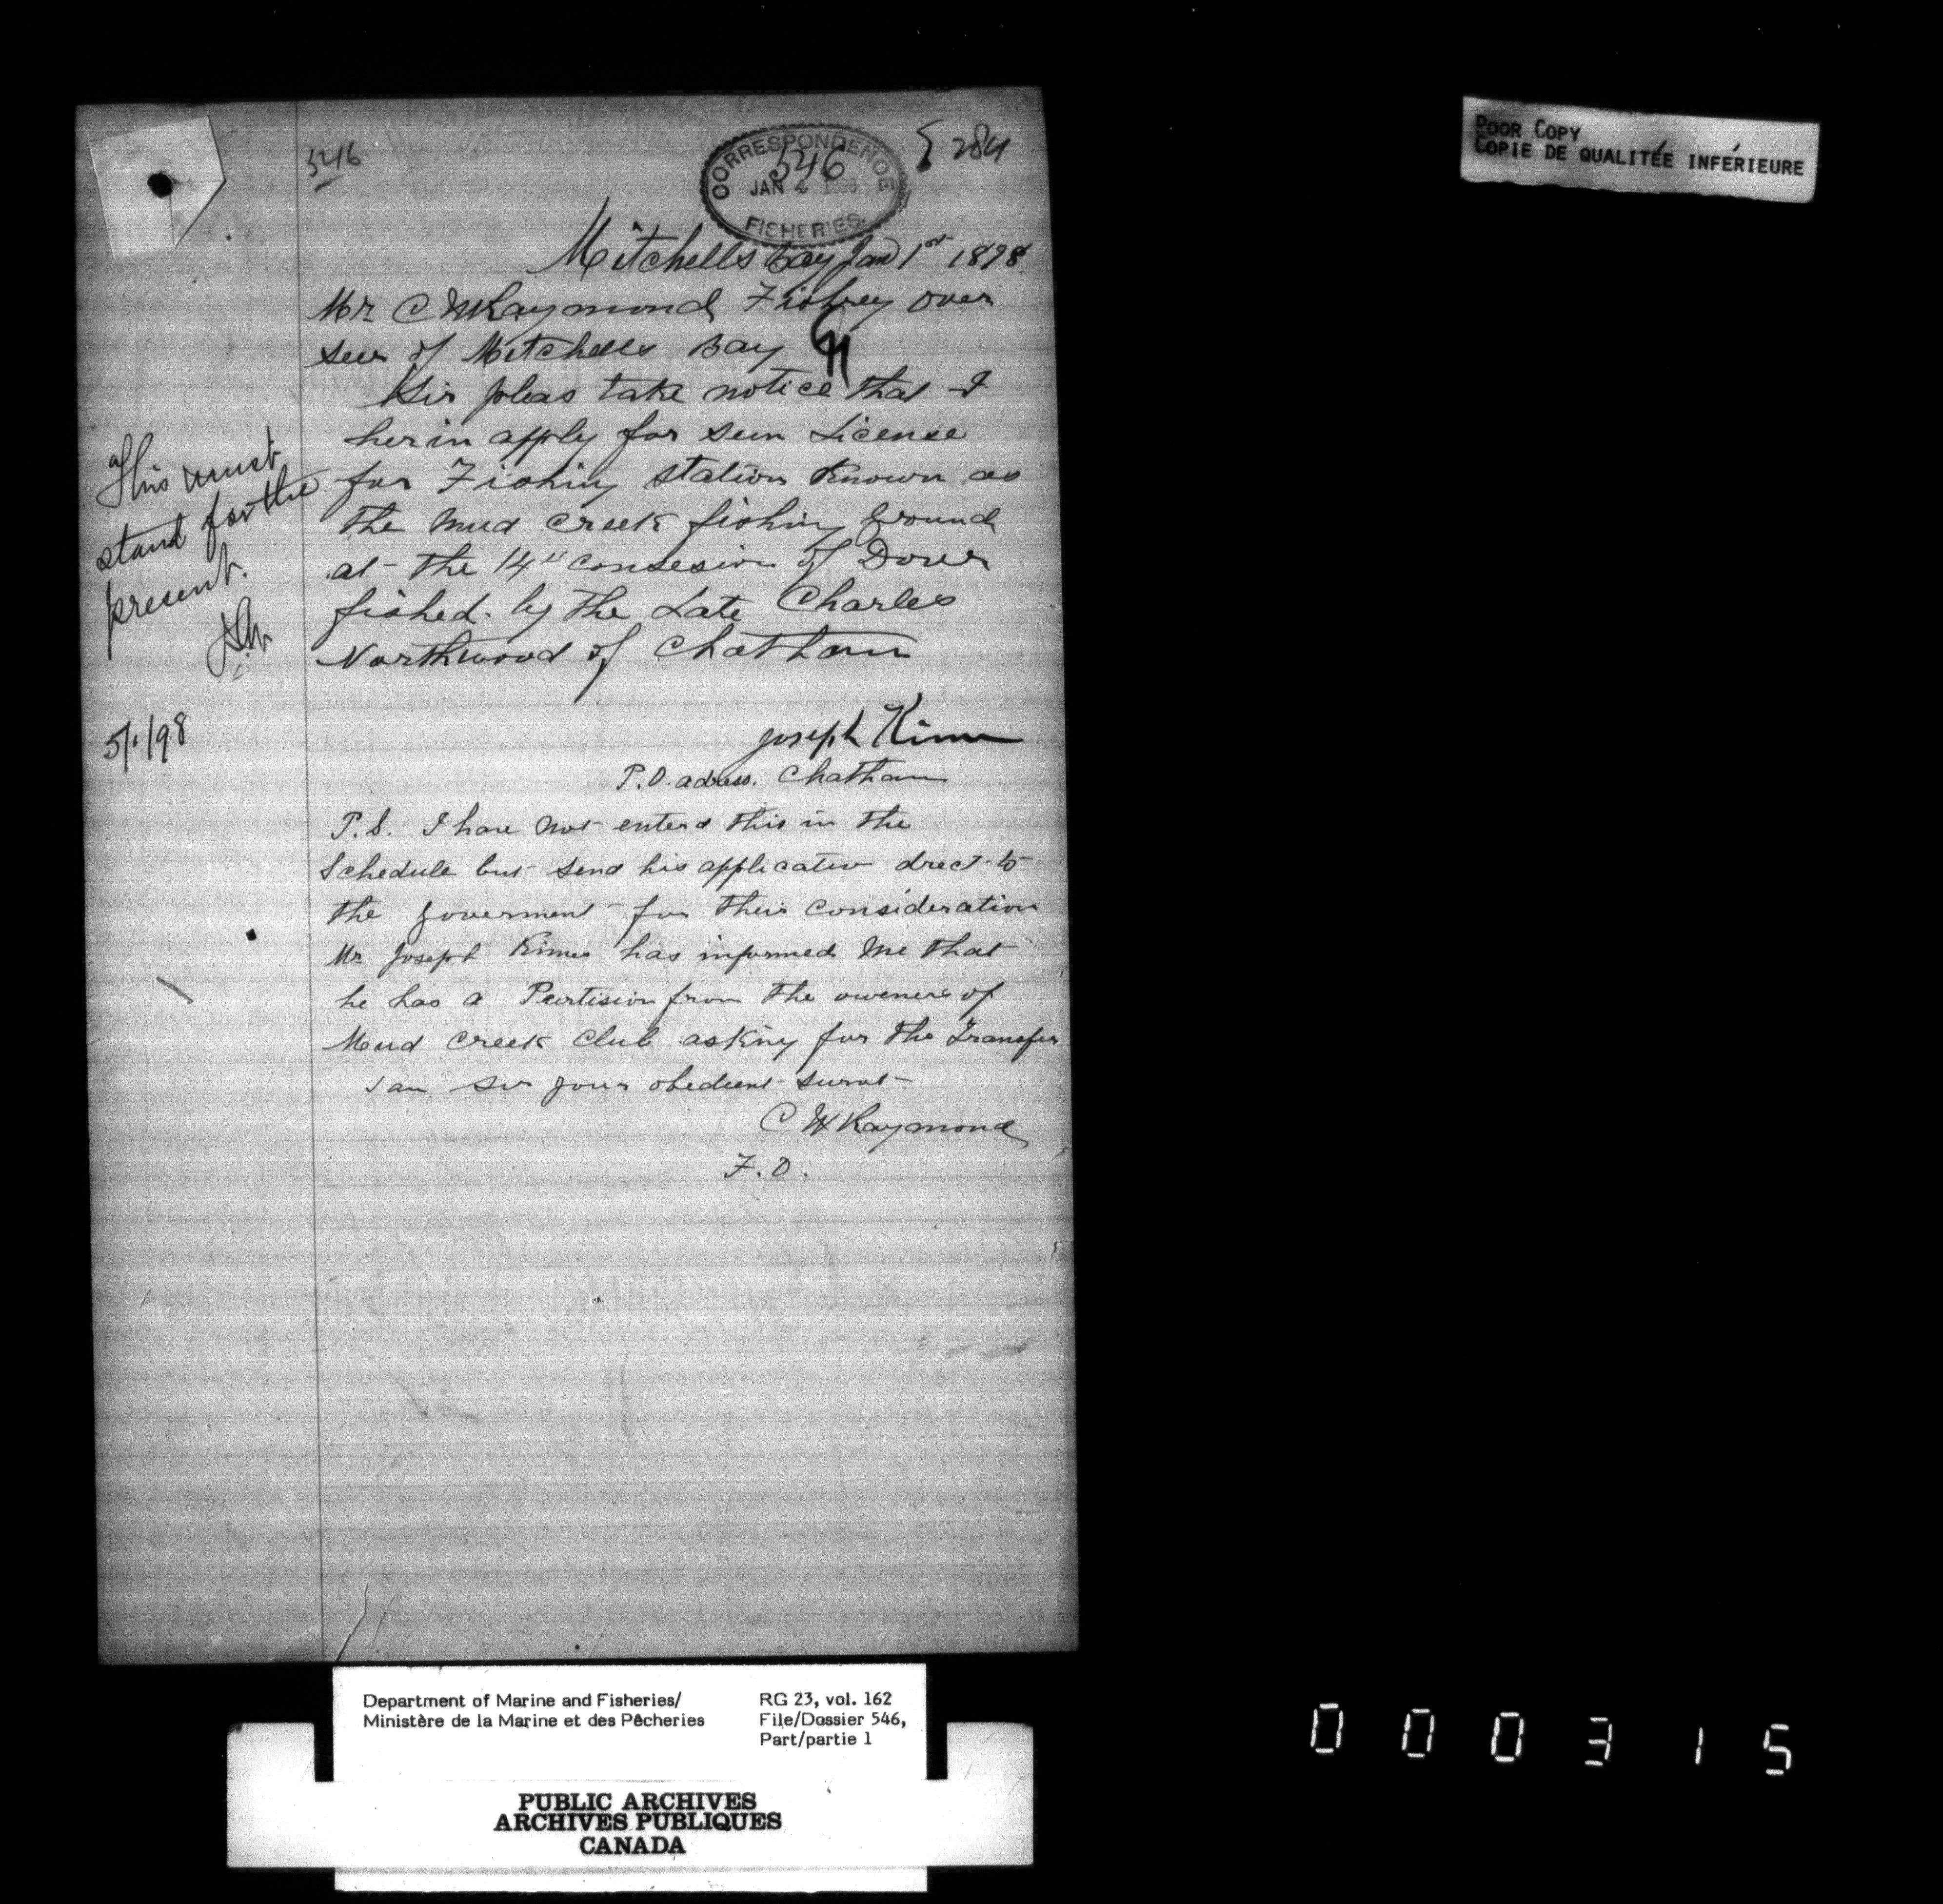 546
CORRESPONDENCE
546
JAN 4 1898
FISHERIES
284
POOR COPY
COPIE DE QUALITÉE INFÉRIEURE
Mitchells Bay Jan 1st 1898
Mr C W Raymond Fishrey over
seer of Mitchells Bay
Sir pleas take notice that I
herin apply for sein License
for Fishing station Known as
the Mud Creek fishing Ground
at the 14th consesion of Dover
fished by the Late Charles
Northwood of Chatham
This must
stand for the
present.
5/1/98
Joseph Kime
P.O. adress. Chatham
P.S. I have not enterd this in the
Schedule but send his applicatin drect to
the goverment for their consideration
Mr Joseph Kime has informed me that
he has a Pertision from the oweners of
Mud Creek Club asking for the Transfer
I am sir your obedient survt
C W Raymond
F.O.
Department of Marine and Fisheries/
Ministère de la Marine et des Pêcheries
RG 23, vol. 162
File/Dossier 546,
Part/partie 1
PUBLIC ARCHIVES
ARCHIVES PUBLIQUES
CANADA
000315